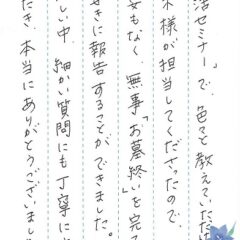 活セミナー」で、色々と教えていただ
木様が担当してくださったので、
安もなく、無事「お墓終い」を完了
好きに報告することができました。
しい中、細かい質問にも丁寧に
だき、本当にありがとうございまし